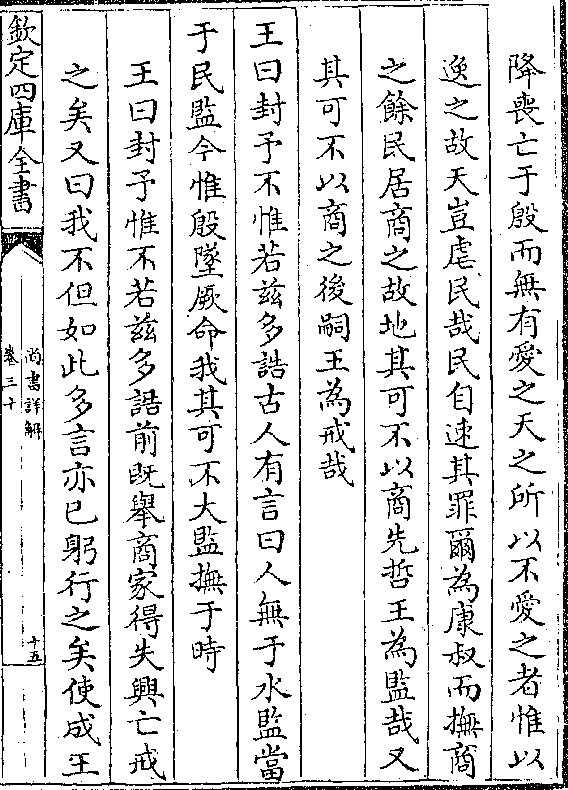 降喪亡于殷而無有愛之天之所以不愛之者惟以
逸之故天豈虐民哉民自速其罪爾為康叔而撫商
之餘民居商之故地其可不以商先哲王為監哉又
其可不以商之後嗣王為戒哉
王曰封予不惟若兹多誥古人有言曰人無于水監當
于民監今惟殷墜厥命我其可不大監撫于時
王曰封予惟不若兹多誥前既舉商家得失興亡戒
之矣又曰我不但如此多言亦已躬行之矣使成王
欽定四庫全書
尚書詳解
卷三十
十五